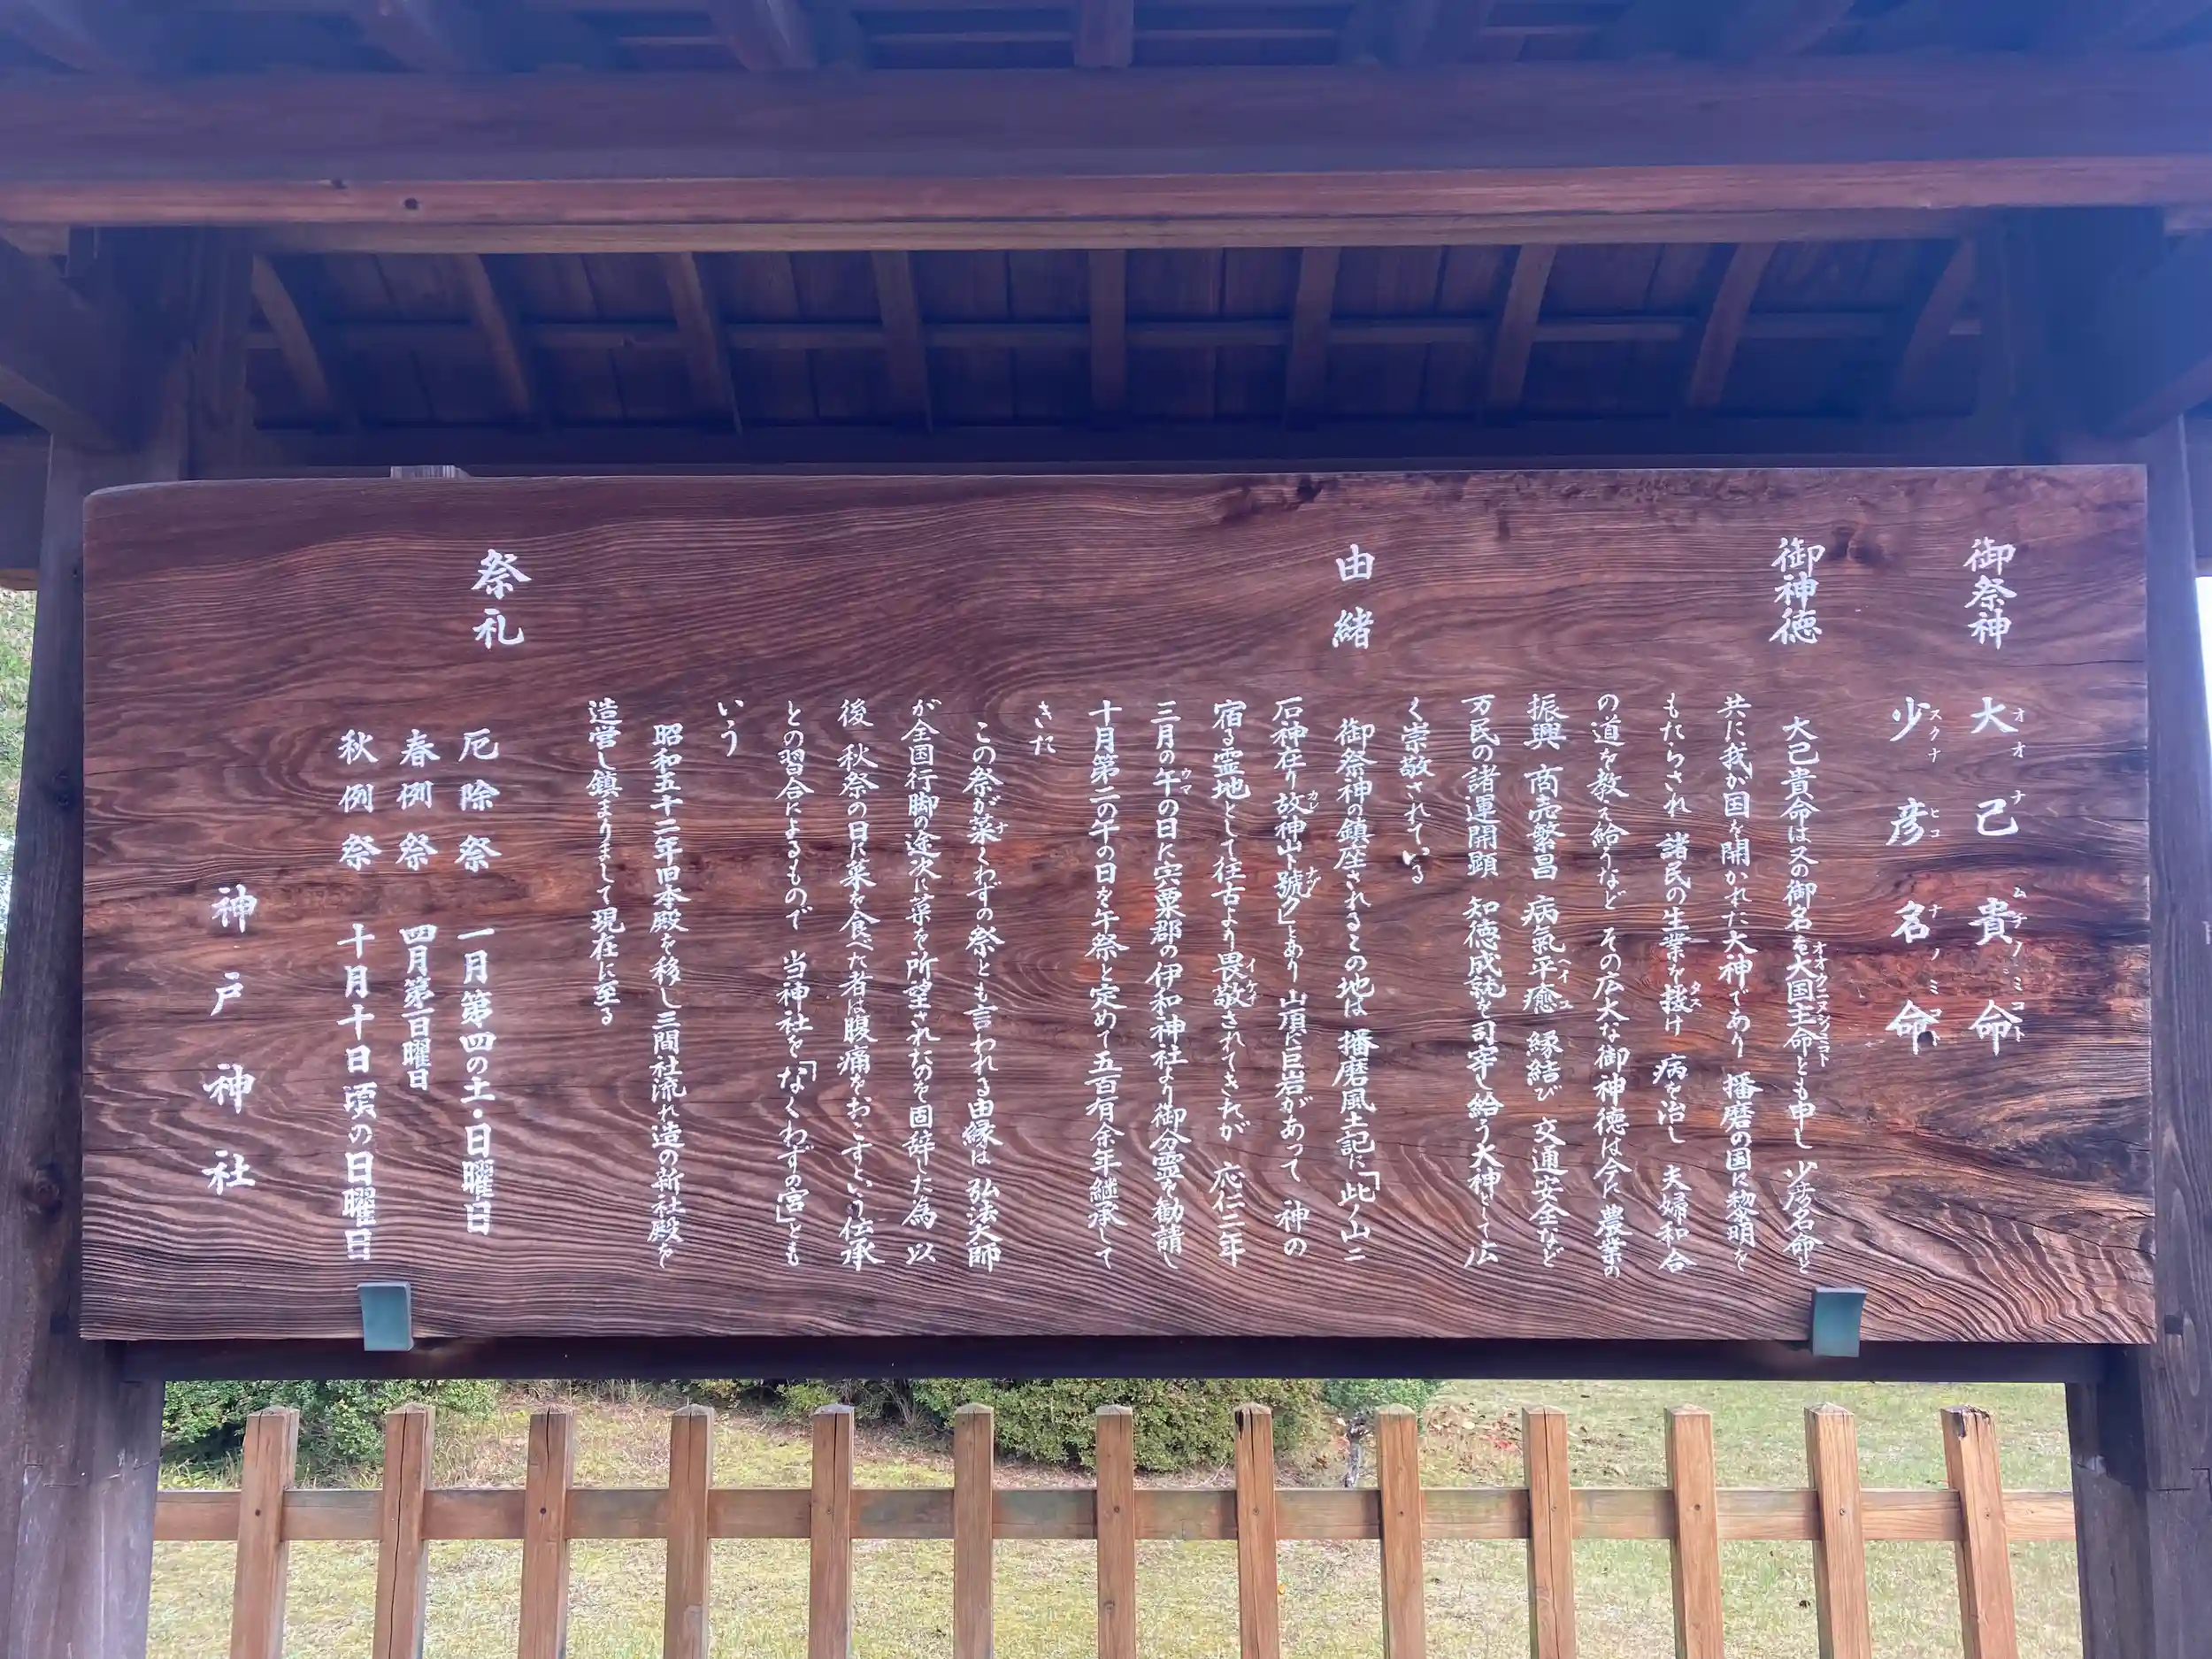 御祭神
大己貴命
オオナムチノミコト
少彦名命
スクナヒコナノミコト
御神徳
大己貴命は又の御名を大国主命とも申し 少彦名命と
オオクニヌシノミコト
共に我が国を開かれた大神であり 播磨の国に黎明を
もたらされ 諸民の生業を援け 病を治し 夫婦和合
タス
の道を教え給うなど その広大な御神徳は今に農業の
振興 商売繁昌 病氣平癒 縁結び 交通安全など
ヘイユ
万民の諸運開顕 知徳成就を司宰し給う大神として広
く崇敬されている
由緒
御祭神の鎮座されるこの地は 播磨風土記に「此ノ山ニ
石神在り故神山ト號ク」とあり 山頂に巨岩があって 神の
カレ
ナヅ
宿る霊地として往古より畏敬されてきたが 応仁二年
イケイ
三月の午の日に宍粟郡の伊和神社より御分霊を勧請し
ウマ
十月第二の午の日を午祭と定めて五百有余年継承して
きた
この祭が菜くわずの祭とも言われる由縁は 弘法大師
ナ
が全国行脚の途次に菜を所望されたのを固辞した為 以
後 秋祭の日に菜を食べた者は腹痛をおこすという伝承
との習合によるもので 当神社を「なくわずの宮」とも
いう
昭和五十二年旧本殿を移し三間社流れ造の新社殿を
造営し鎮まりまして現在に至る
祭礼
厄除祭 一月第四の土・日曜日
春例祭 四月第一日曜日
秋例祭 十月十日頃の日曜日
神戸神社